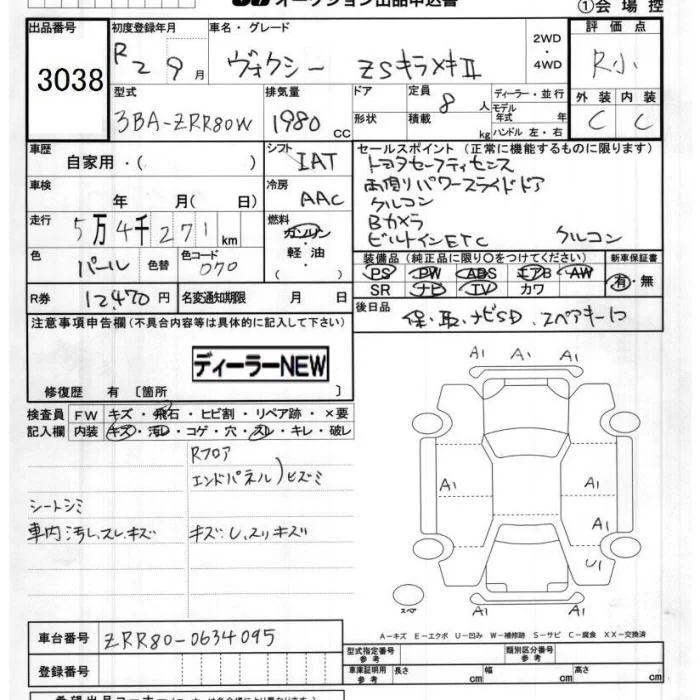 オークション出品申込書
①会場控
出品番号 3038
初度登録年月 R2 9月
車名・グレード ヴォクシー ZSキラメキII
2WD・4WD
評価点 R小
型式 3BA-ZRR80W
排気量 1980 CC
ドア 形状
定員 8人
積載 kg
ディーラー・並行
モデル年式 年
ハンドル 左・右
外装 C 内装 C
車歴 自家用・( )
シフト IAT
セールスポイント(正常に機能するものに限ります)
トヨタセーフティセンス
両側パワースライドドア
クルコン
Bカメラ
ビルトインETC クルコン
車検 年 月( 日)
冷房 AAC
走行 5万4千271km
燃料 ガソリン・軽油・( )
色 パール 色替
色コード 070
装備品(純正品に限り○をつけてください) 新車保証書
PS PW ABS エアB AW 有・無
SR ナビ TV カワ
R券 12,470円
名変通知期限 月 日
後日品 保・取、ナビSD、スペアキー1コ
注意事項申告欄(不具合内容等は具体的に記入して下さい)
ディーラーNEW
修復歴 有 [箇所 ]
検査員記入欄
FW キズ・飛石・ヒビ割・リペア跡・×要
内装 キズ・汚れ・コゲ・穴・スレ・キレ・破レ
Rフロア
エンドパネル)ヒズミ
シートシミ
車内汚レ、スレ、キズ キズ:U、スリキズ
A1 A1 A1
A1 A1
A1
U1
A1 A1 A1
スペア
A-キズ E-エクボ U-凹み W-補修跡 S-サビ C-腐食 XX-交換済
車台番号 ZRR80-0634095
登録番号
型式指定番号 参考
類別区分番号 参考
車庫証明用 参考 長さ cm 幅 cm 高さ cm